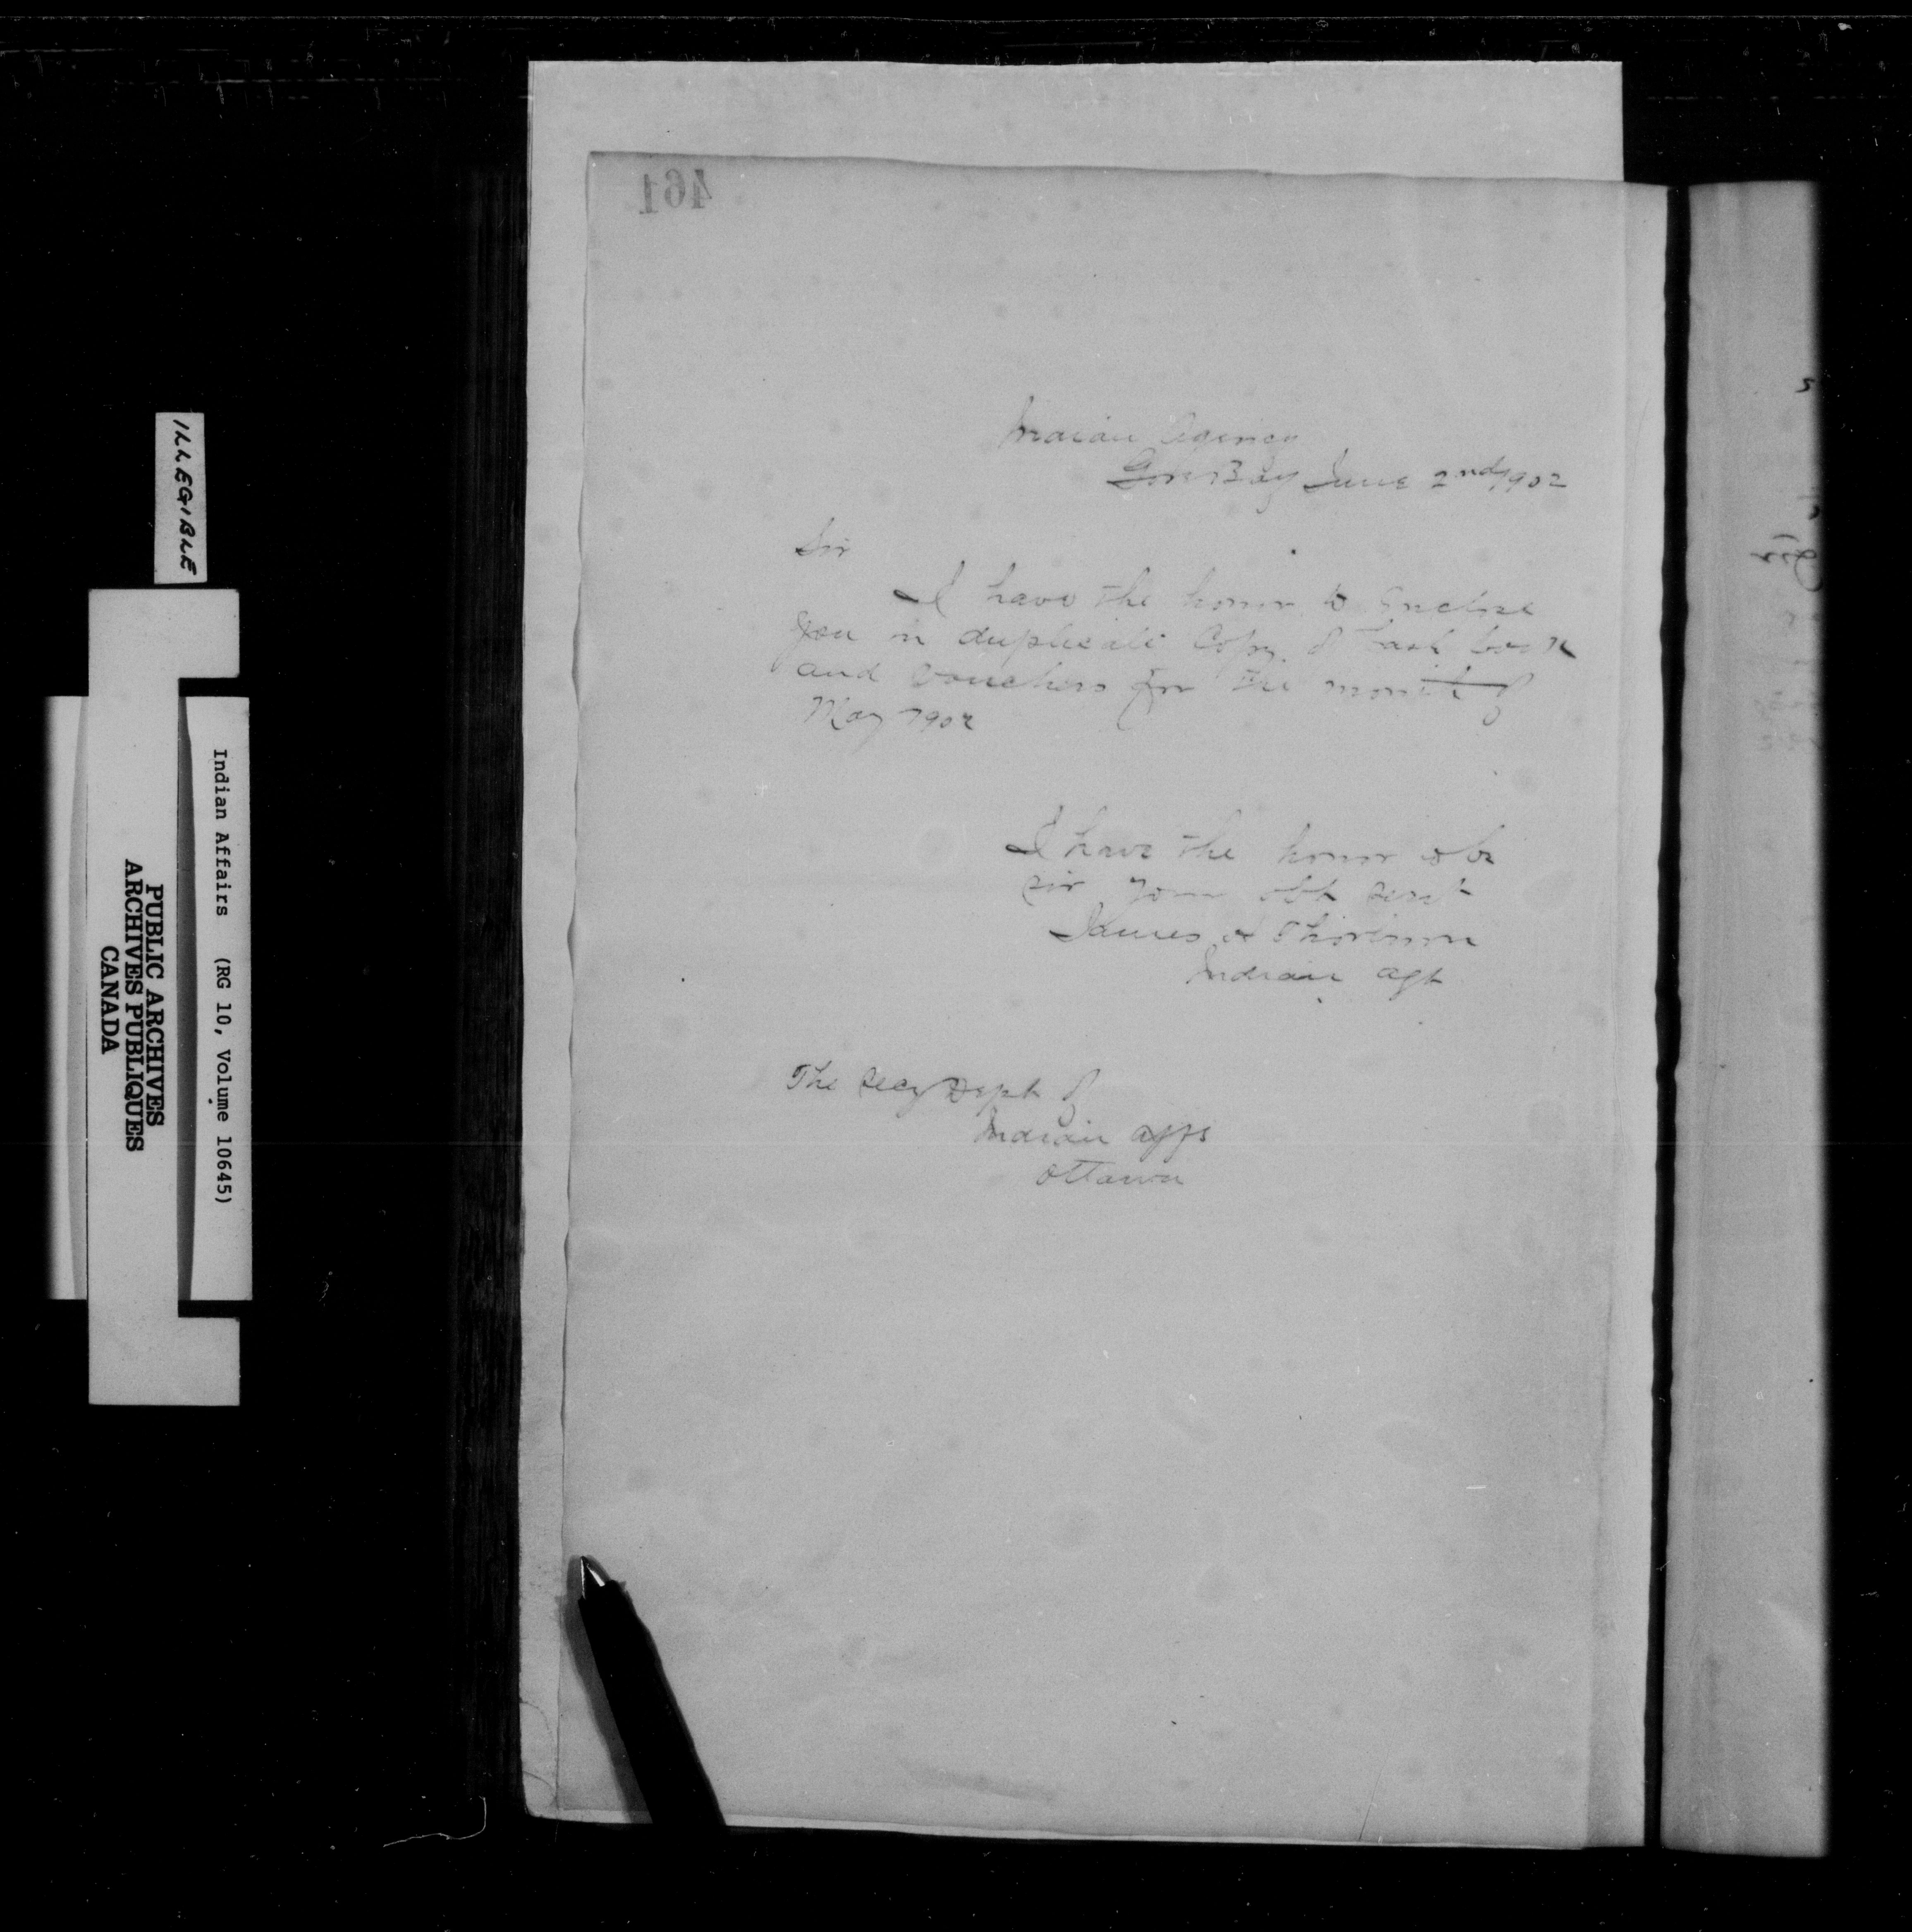 461
Indian Agency
Gore Bay June 2nd 1902
Sir
I have the honor to Enclose
you in duplicate Copy of Cash book
and vouchers for the month of
May 1902
I have the honor to be
sir your obt servt
James
Indian agt
The Secy Dept of
Indian affs
Ottawa
ILLEGIBLE
Indian Affairs (RG 10, Volume 10645)
PUBLIC ARCHIVES
ARCHIVES PUBLIQUES
CANADA